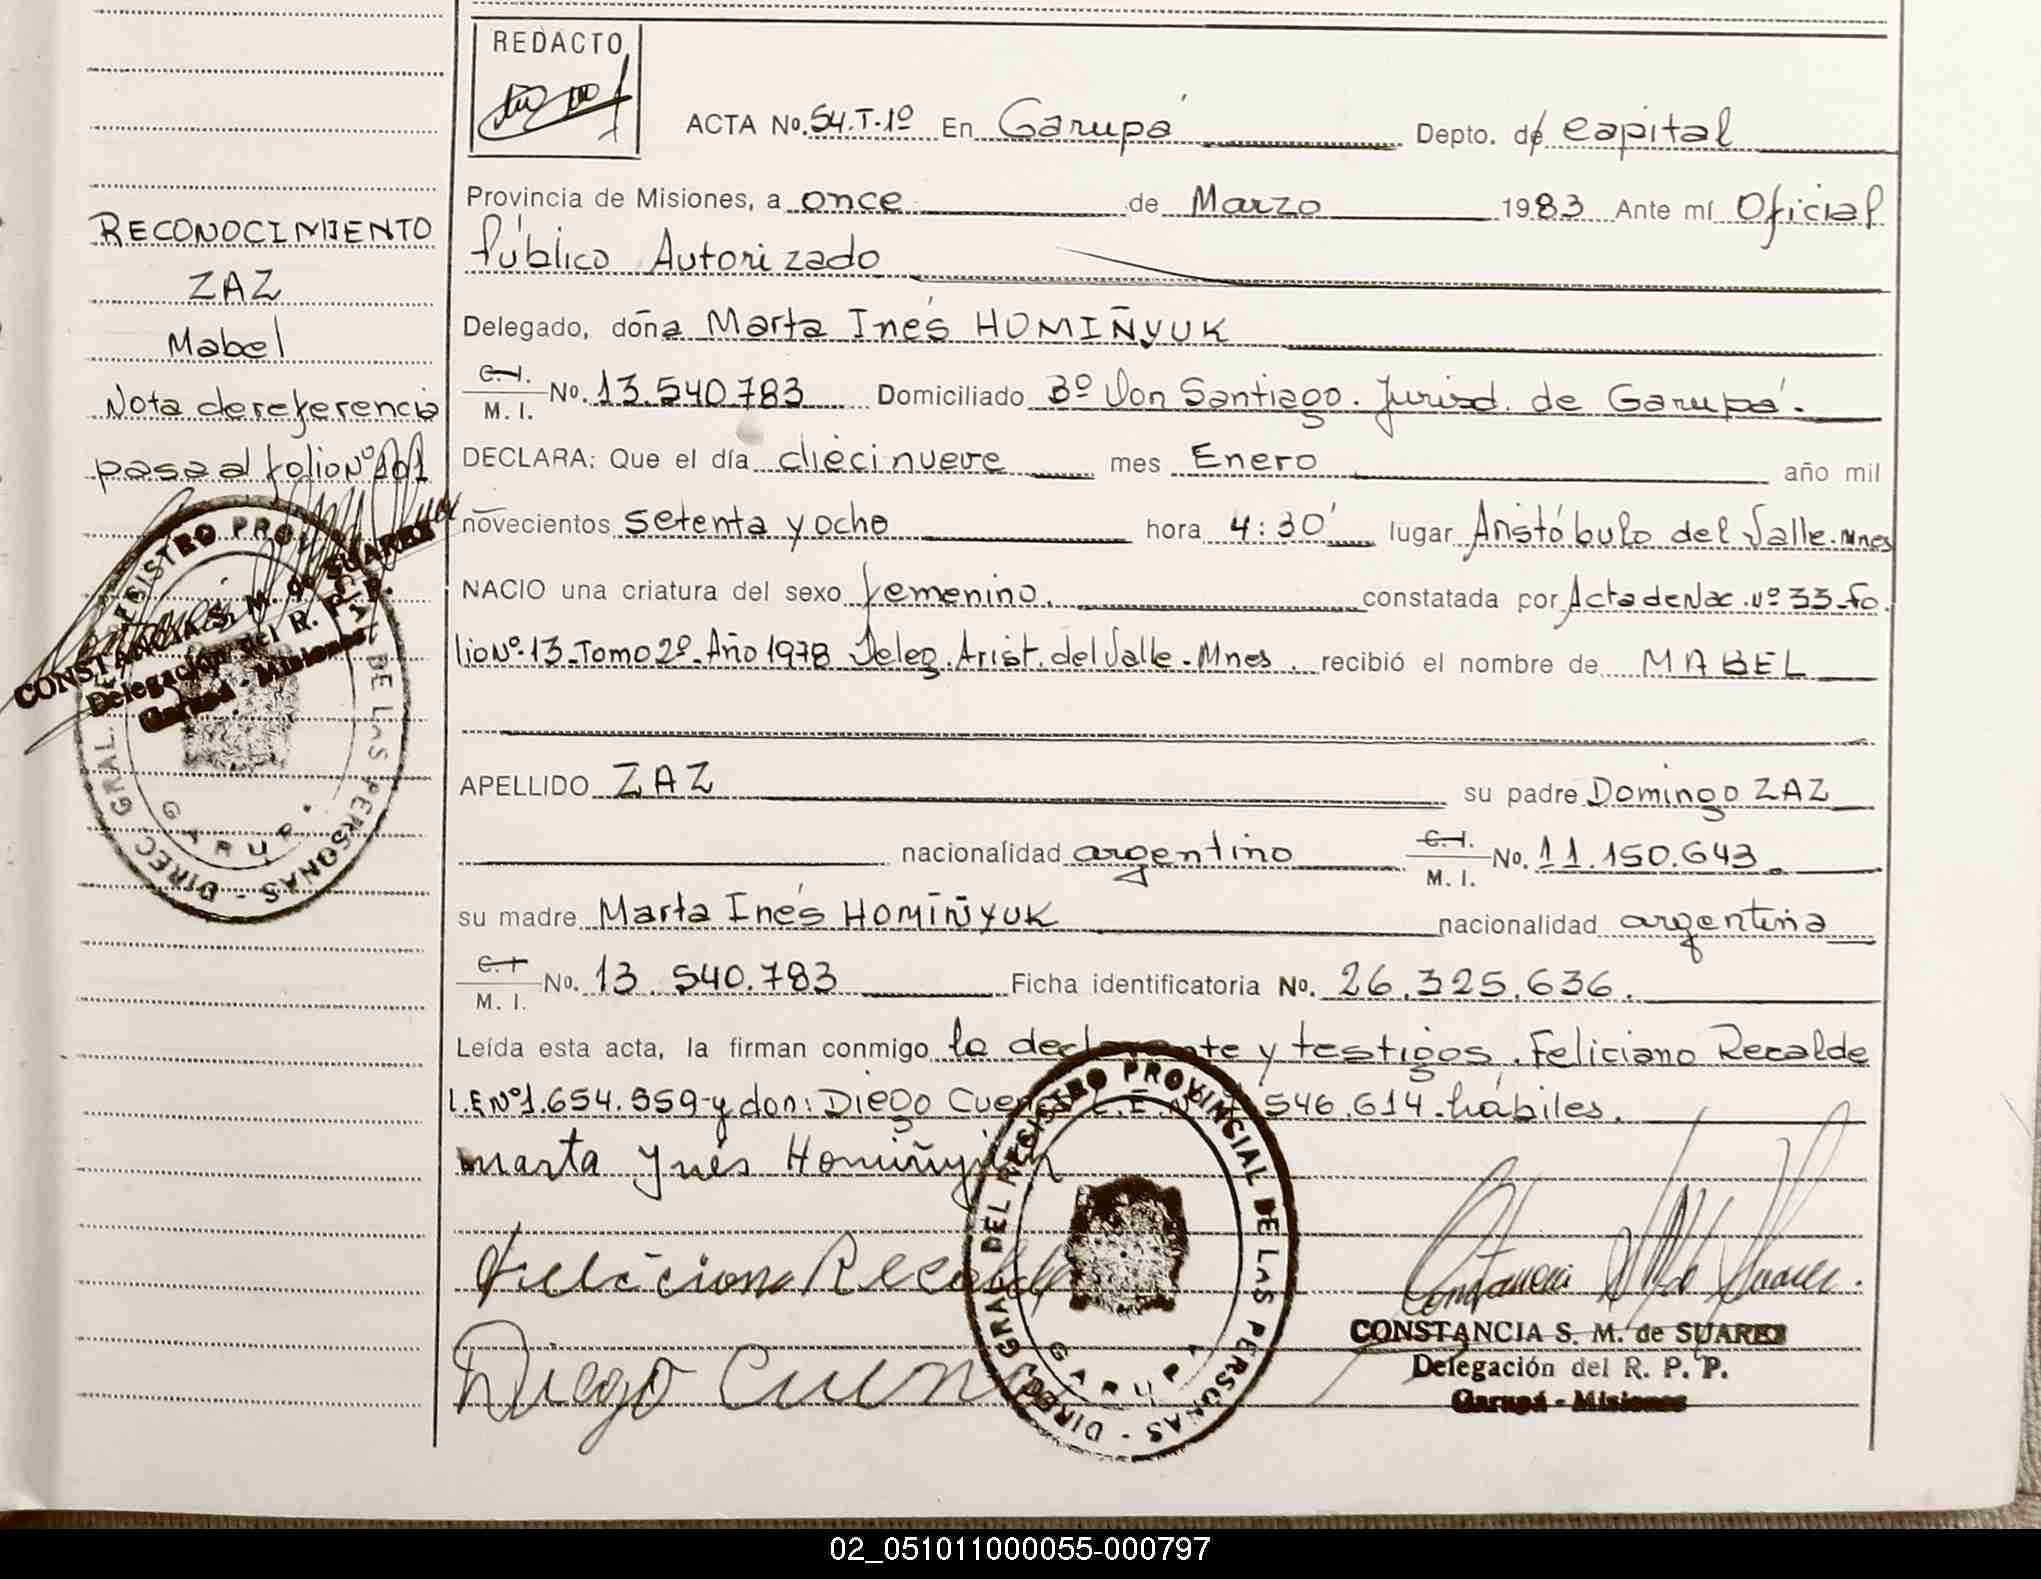 REDACTO
ACTA No. 54.T-1º En Garupá Depto. de capital
Provincia de Misiones, a once de Marzo 1983 Ante mí Oficial
Público Autorizado
Delegado, doña Marta Inés HOMIÑYUK
C.I. M.I. No. 13.540.783 Domiciliado Bº Don Santiago. Jurisd. de Garupá.
DECLARA: Que el día diecinueve mes Enero año mil
novecientos setenta y ocho hora 4:30' lugar Aristóbulo del Valle. Mnes
NACIO una criatura del sexo femenino. constatada por Acta de Nac. Nº 33-Fo
lio Nº 13-Tomo 2º-Año 1978 Deleg. Arist. del Valle-Mnes. recibió el nombre de MABEL
APELLIDO ZAZ su padre Domingo ZAZ
nacionalidad argentino C.I. M.I. No. 11.150.643
su madre Marta Inés HOMIÑYUK nacionalidad argentina
C.I M.I. No. 13.540.783 Ficha identificatoria No. 26.325.636.
Leída esta acta, la firman conmigo la declarante y testigos. Feliciano Recalde
L.E Nº 1.654.959-y don: Diego 546.614-hábiles.
Marta Ynés Homiñyuk
Feliciano Recalde
Diego
CONSTANCIA S. M. de SUAREZ
Delegación del R. P. P.
Garupá - Misiones
DIREC GRAL. DEL REGISTRO PROVINCIAL DE LAS PERSONAS -
GARUPA
RECONOCIMIENTO
ZAZ
Mabel
Nota de referencia
pasa al folio Nº 101
CONSTANCIA S. M. de SUAREZ
Delegación del R. P. P.
Garupá - Misiones
DIREC GRAL. REGISTRO DE LAS PERSONAS -
GARUPA
02_051011000055-000797